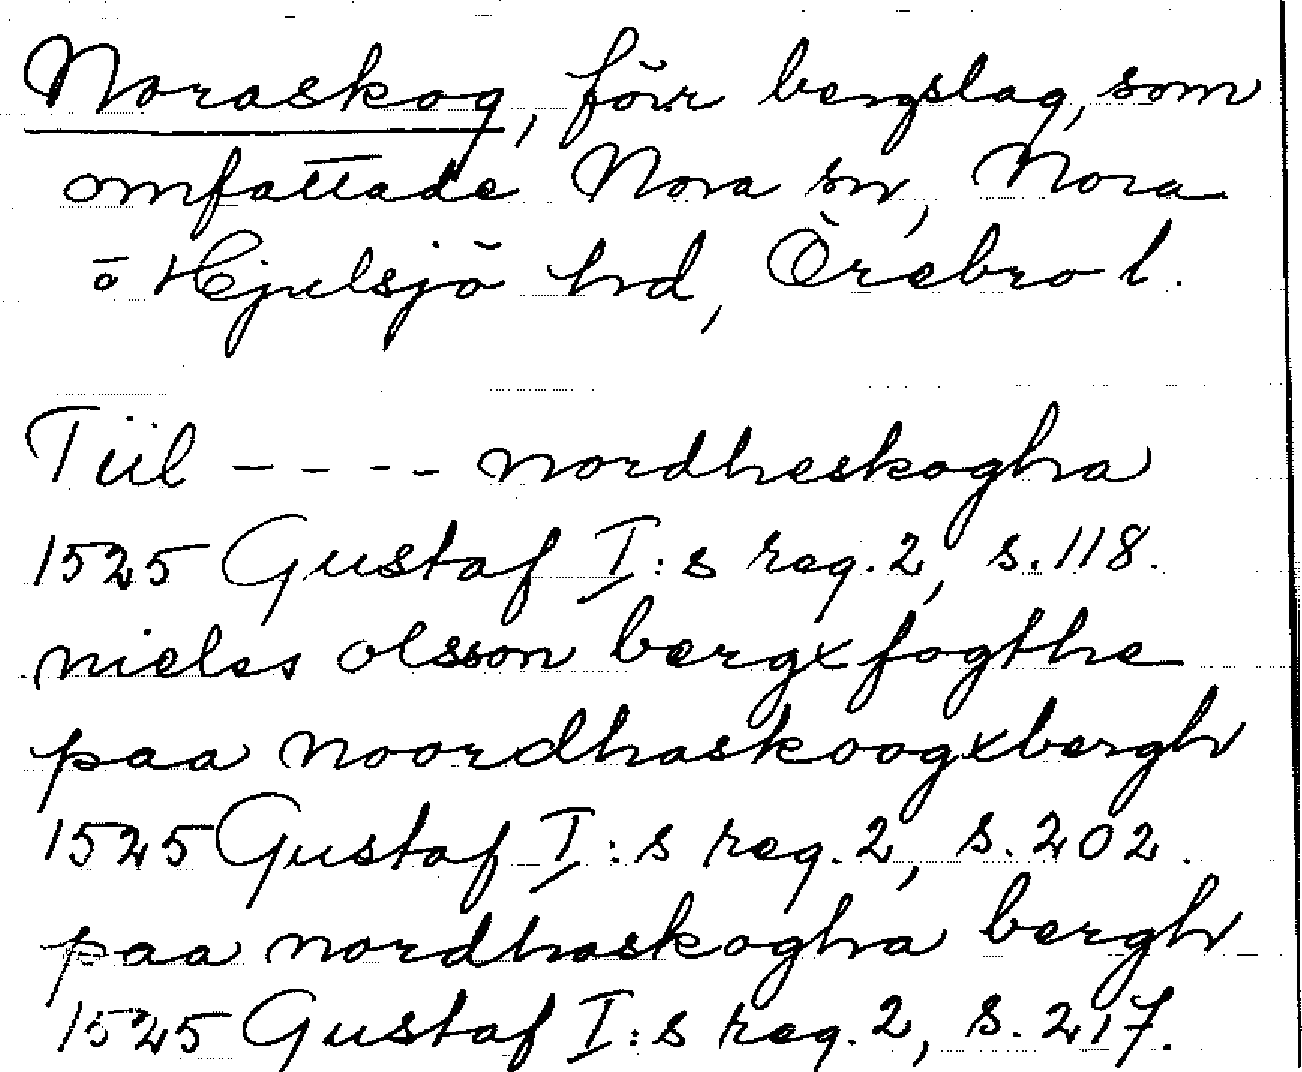 Noraskog, förr bergslag, som
omfattade Nora sn, Nora
o Hjulsjö hd, Örebro l.
Tiil ---- nordheskogha
1525 Gustaf I:s reg. 2, s. 118.
nieles olsson bergxfogthe
paa noordhaskoogxbergh
1525 Gustaf I:s reg. 2, s. 202.
paa nordhaskogha bergh
1525 Gustaf I:s reg. 2, s. 217.